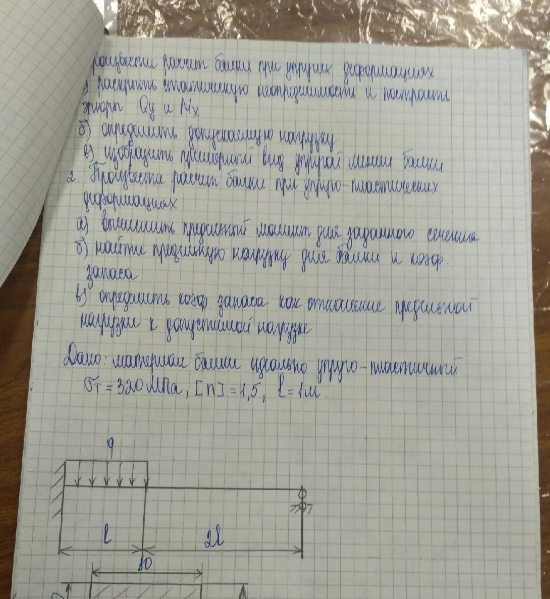 произвести расчет балки при упругих деформациях
раскрыть статическую неопределимость и построить
эпюры Qy и Mx
б) определить допускаемую нагрузку
в) изобразить примерный вид упругой линии балки
2. Произвести расчет балки при упруго-пластических
деформациях
а) вычислить предельный момент для заданного сечения
б) найти предельную нагрузку для балки и коэф.
запаса
в) определить коэф запаса как отношение предельной
нагрузки к допустимой нагрузке
Дано: материал балки идеально упруго-пластичный
σт = 320 МПа, [n] = 1,5, l = 1м.
q
l 2l
80